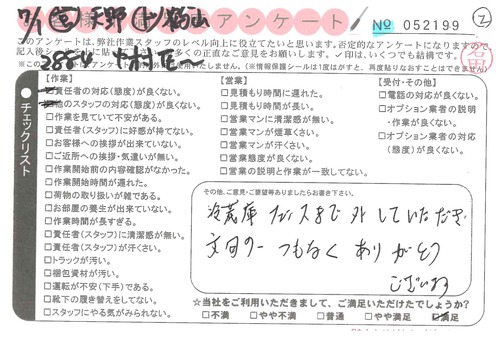 7/1
アンケート
№ 052199
このアンケートは、弊社作業スタッフのレベル向上に役立てたいと思います。否定的なアンケートになりますので
記入後シートに貼
多くの正直なご意見をお願いします。✓印は、いくつでも結構です。
いません。(※情報保護シールは1度はがすと、再度貼りなおすことはできません)
チェックリスト
【作業】
責任者の対応(態度)が良くない。
他のスタッフの対応(態度)が良くない。
□作業を見ていて不安がある。
□責任者(スタッフ)に好感が持てない。
□お客様への挨拶が出来ていない。
□ご近所への挨拶・気遣いが無い。
□作業開始前の内容確認がなかった。
□作業開始時間が遅れた。
□荷物の取り扱いが雑である。
□お部屋の養生が出来ていない。
□作業時間が長すぎる。
□責任者(スタッフ)に清潔感が無い。
□責任者(スタッフ)が汗くさい。
□トラックが汚い。
□梱包資材が汚い。
□運転が不安(下手)である。
□靴下の履き替えをしてない。
□スタッフにやる気がみられない。
【営業】
□見積もり時間に遅れた。
□見積もり時間が長い。
□営業マンに清潔感が無い。
□営業マンが煙草くさい。
□営業マンが汗くさい。
□営業態度が良くない。
□営業の説明と作業が一致してない。
【受付・その他】
□電話の対応が良くない。
□オプション業者の説明
・作業が良くない。
□オプション業者の対応
(態度)が良くない。
その他、ご意見・ご要望等ありましたらお書き下さい。
冷蔵庫 ドアまで外していただき
文句の一つもなく ありがとう
ございます
☆当社をご利用いただきまして、ご満足いただけたでしょうか?
□不満 □やや不満 □普通 □やや満足 満足